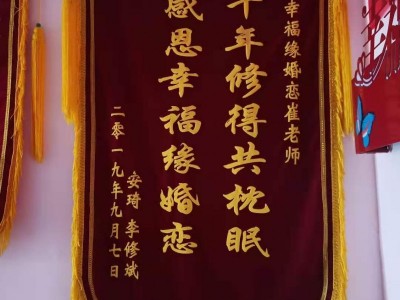 幸福缘婚恋崔老师
千年修得共枕眠
感恩幸福缘婚恋
安琦 李修斌
二零一九年九月七日